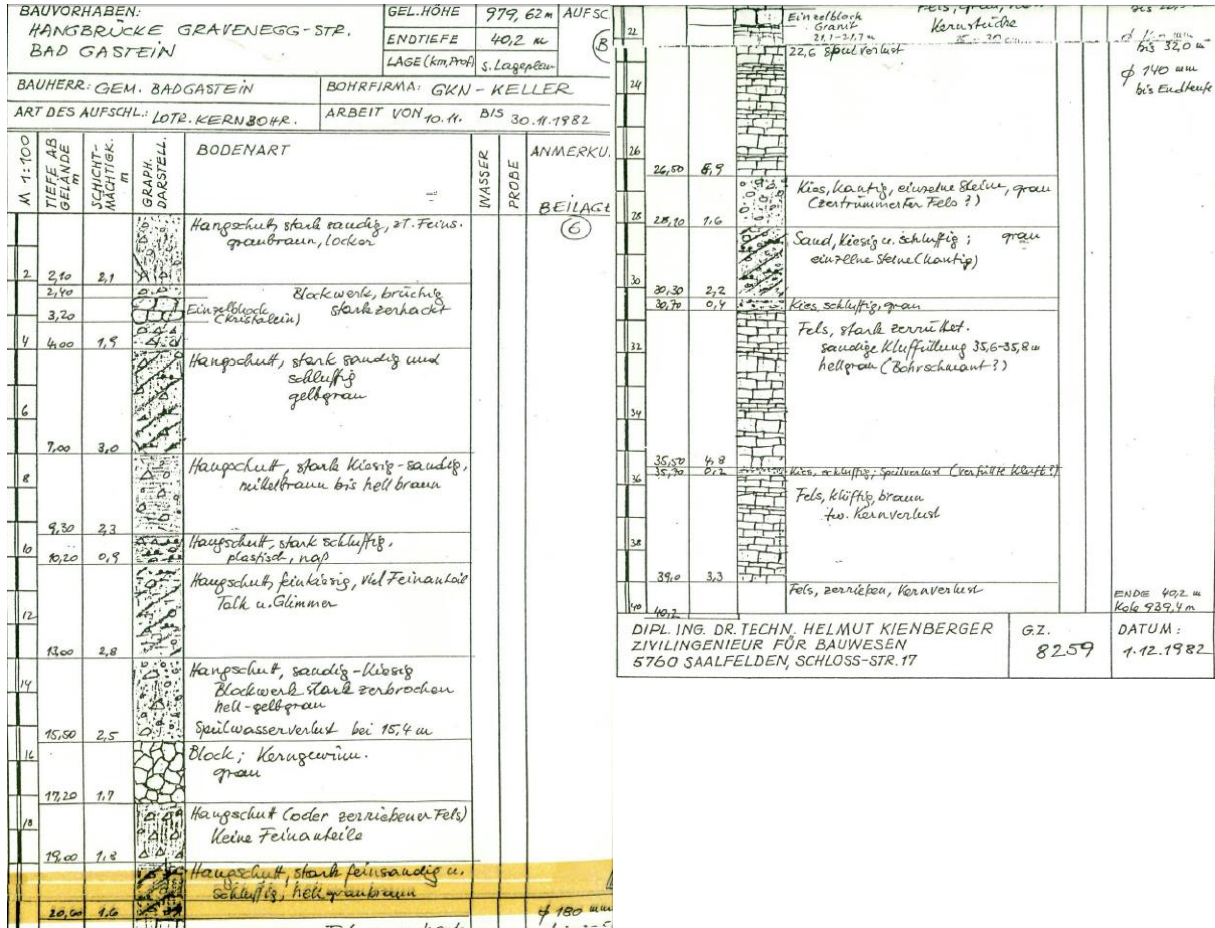 BAUVORHABEN:
HANGBRÜCKE GRAVENEGG-STR.
BAD GASTEIN
GEL.HÖHE 979,62m AUFSC
ENDTIEFE 40,2 m
LAGE (km, Prof) s. Lageplan
BAUHERR: GEM. BADGASTEIN BOHRFIRMA: GKN - KELLER
ART DES AUFSCHL.: LOTR. KERNBOHR. ARBEIT VON 10.11. BIS 30.11.1982
M 1:100
TIEFE AB GELÄNDE m
SCHICHT-MÄCHTIGK. m
GRAPH. DARSTELL.
BODENART
WASSER
PROBE
ANMERKU.
BEILAGE
6
Hangschutt, stark sandig, zt. Feins.
graubraun, locker
2 2,10 2,1
2,40 Blockwerk, brüchig
Einzelblock stark zerhackt
3,20 (Kristallin)
4 4,00 1,9
Hangschutt, stark sandig und
schluffig
gelbgrau
6
7,00 3,0
Hangschutt, stark kiesig-sandig,
mittelbraun bis hellbraun
8
9,30 2,3
Hangschutt, stark schluffig,
10 10,20 0,9 plastisch, naß
Hangschutt, feinkiesig, viel Feinanteil
Talk u. Glimmer
12
13,00 2,8
Hangschutt, sandig-kiesig
14 Blockwerk stark zerbrochen
hell-gelbgrau
Spülwasserverlust bei 15,4 m
15,50 2,5
16 Block; Kerngewinn.
grau
17,20 1,7
18 Hangschutt (oder zerriebener Fels)
Keine Feinanteile
19,00 1,8
Hangschutt, stark feinsandig u.
schluffig, hellgraubraun
20,60 1,6 ϕ 180 mm
Einzelblock
Granit Kernstücke
22 21,1-21,7 m 25 - 30 cm
bis 32,0 m
22,6 Spülverlust
ϕ 140 mm
bis Endteufe
24
26
26,50 5,9
Kies, kantig, einzelne Steine, grau
(zertrümmerter Fels?)
28 28,10 1,6
Sand, kiesig u. schluffig; grau
einzelne Steine (kantig)
30 30,30 2,2
30,70 0,4 Kies schluffig, grau
Fels, stark zerrüttet.
32 sandige Kluftfüllung 35,6-35,8 m
hellgrau (Bohrschmant?)
34
35,50 4,8
36 35,70 0,2 Kies, schluffig; Spülverlust (verfüllte Kluft?)
Fels, klüftig, braun
tw. Kernverlust
38
39,0 3,3
Fels, zerrieben, Kernverlust
40 40,2
ENDE 40,2 m
Kote 939,4 m
DIPL. ING. DR. TECHN. HELMUT KIENBERGER
ZIVILINGENIEUR FÜR BAUWESEN
5760 SAALFELDEN, SCHLOSS-STR. 17
G.Z.
8259
DATUM:
1.12.1982